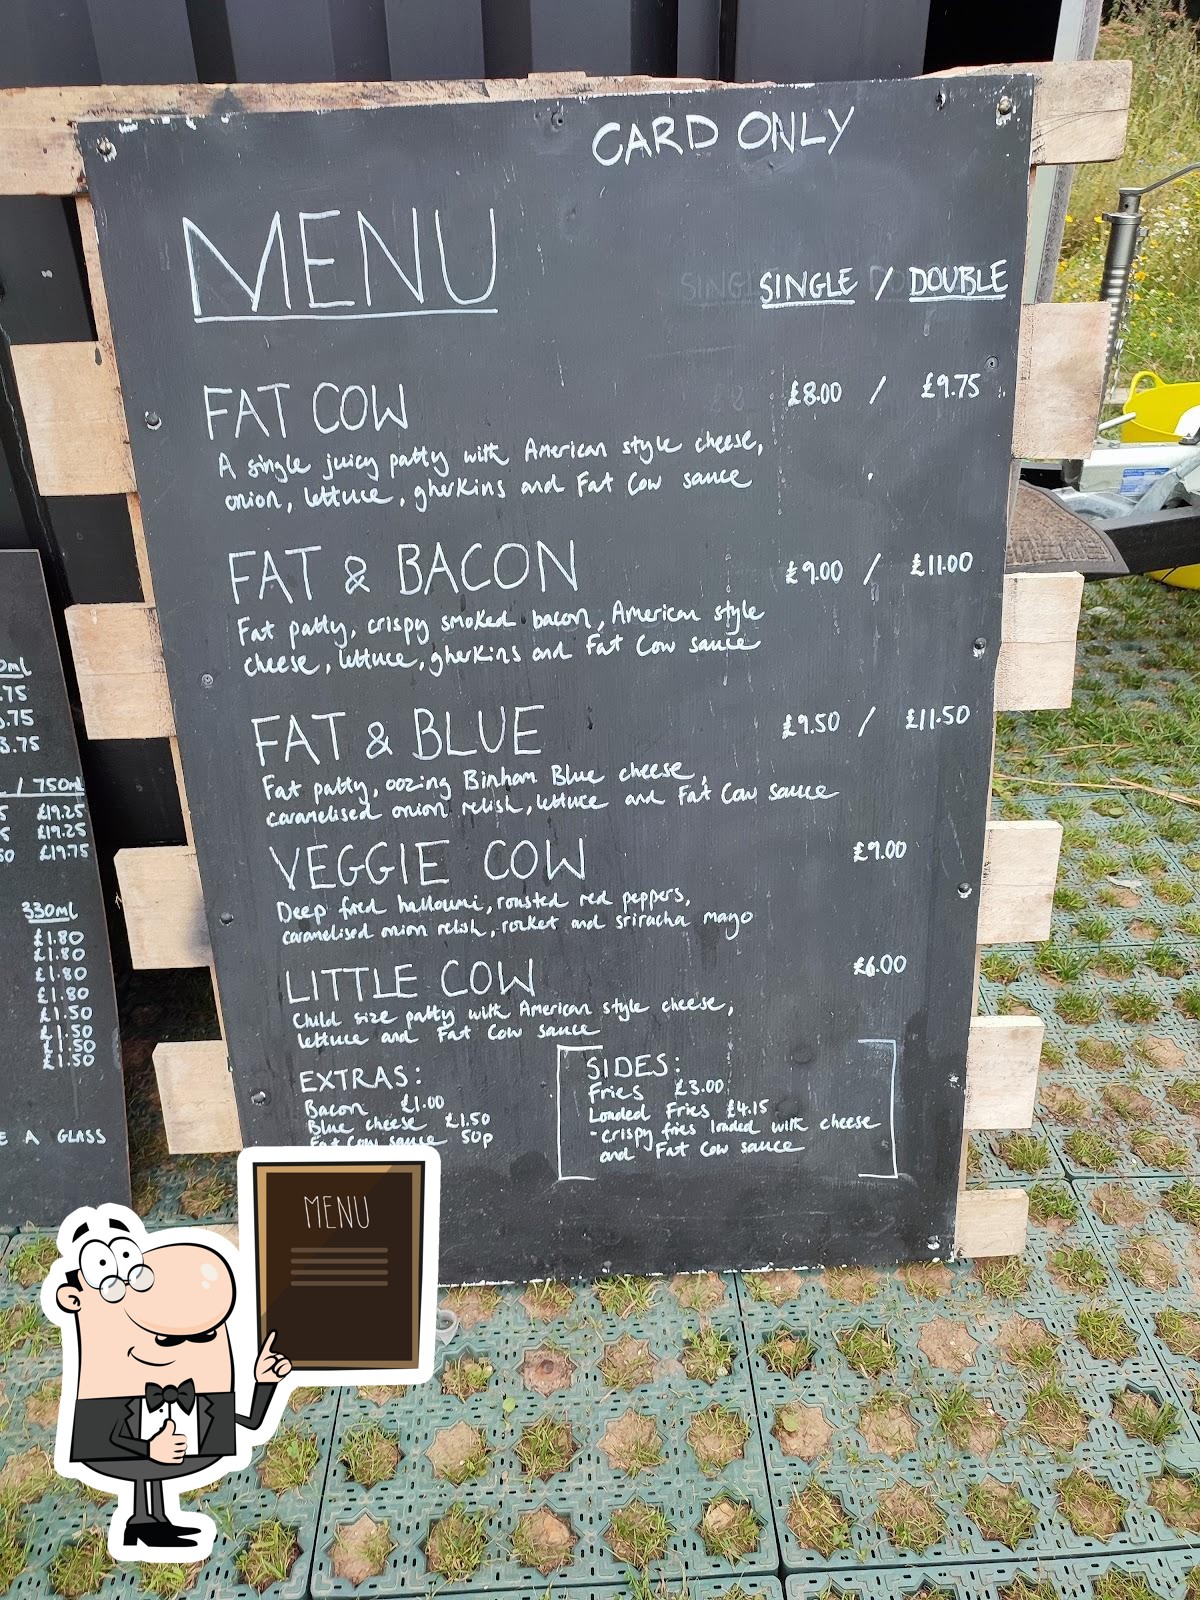 CARD ONLY
MENU
SINGLE / DOUBLE
FAT COW £8.00 / £9.75
A single juicy patty with American style cheese,
onion, lettuce, gherkins and Fat Cow sauce
FAT & BACON £9.00 / £11.00
Fat patty, crispy smoked bacon, American style
cheese, lettuce, gherkins and Fat Cow sauce
FAT & BLUE £9.50 / £11.50
Fat patty, oozing Binham Blue cheese,
caramelised onion relish, lettuce and Fat Cow sauce
VEGGIE COW £9.00
Deep fried halloumi, roasted red peppers,
caramelised onion relish, rocket and sriracha mayo
LITTLE COW £6.00
Child size patty with American style cheese,
lettuce and Fat Cow sauce
EXTRAS:
Bacon £1.00
Blue cheese £1.50
Fat Cow sauce 50p
SIDES:
Fries £3.00
Loaded Fries £4.15
-crispy fries loaded with cheese
and Fat Cow sauce
.75
.75
3.75
/ 750ml
£19.25
£19.25
£19.75
330ml
£1.80
£1.80
£1.80
£1.80
£1.50
£1.50
£1.50
£1.50
A GLASS
MENU